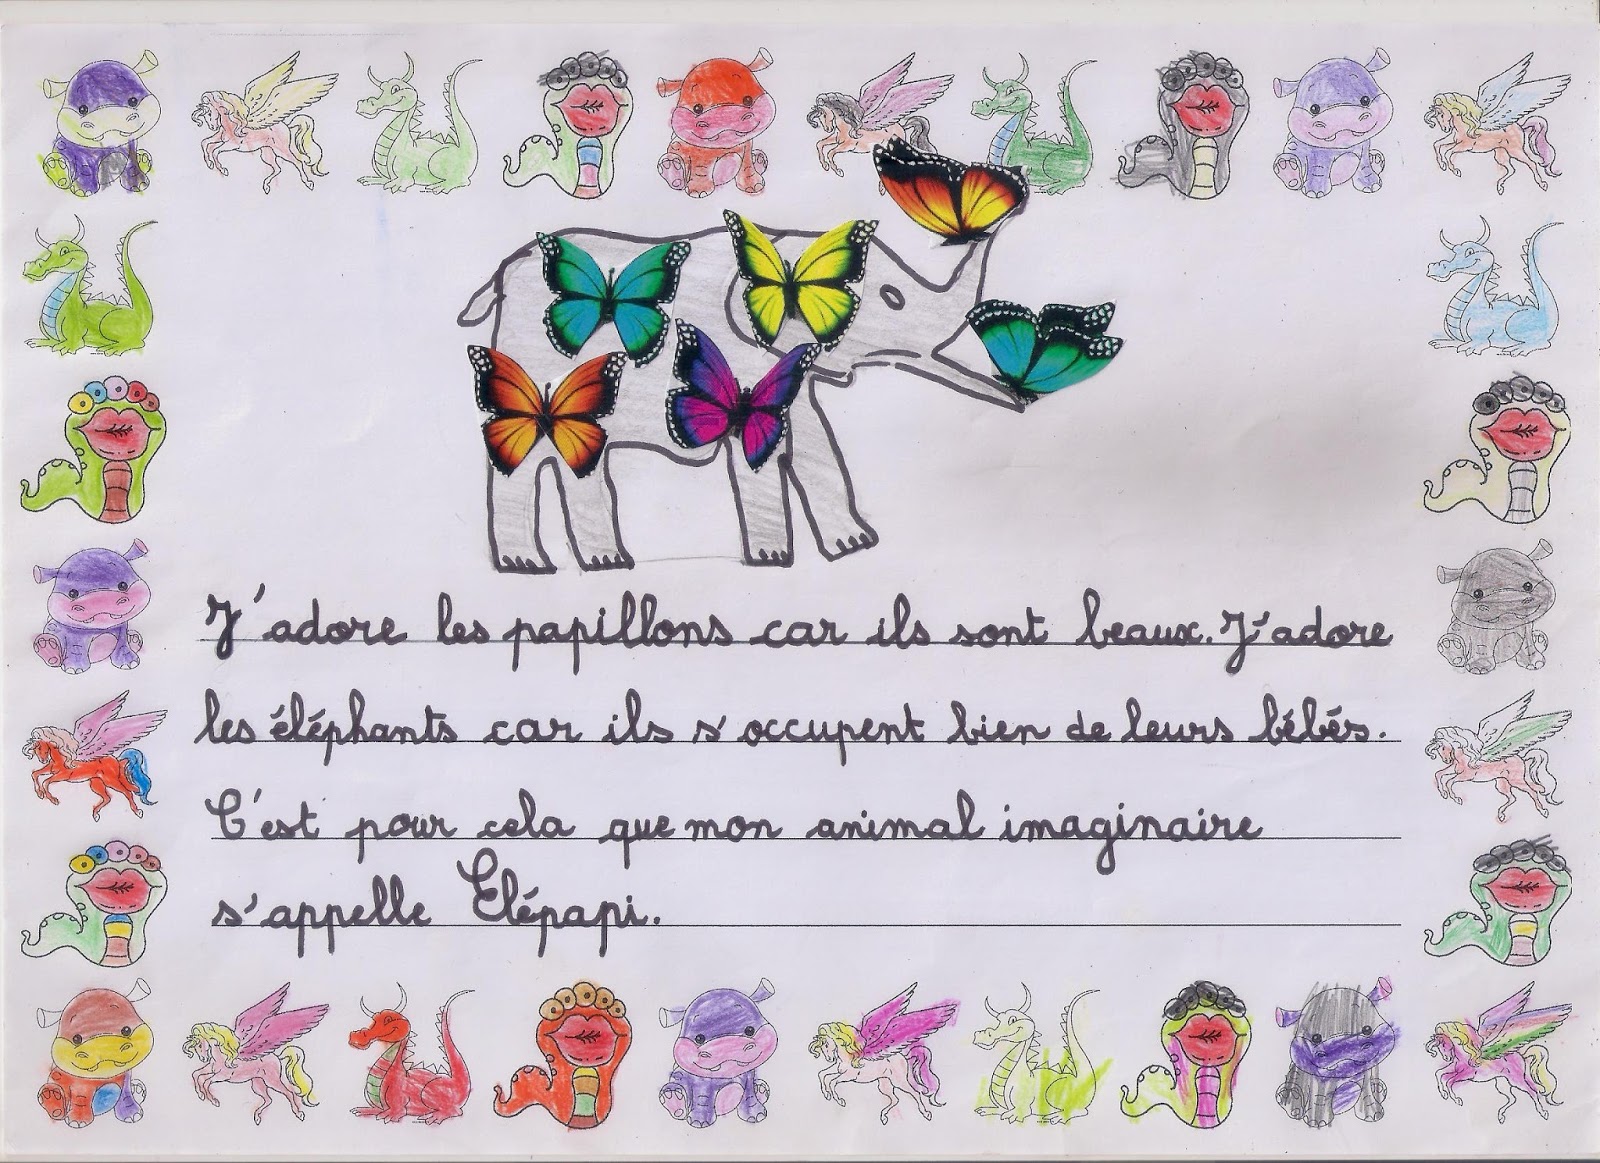 J'adore les papillons car ils sont beaux. J'adore
les éléphants car ils s'occupent bien de leurs bébés.
C'est pour cela que mon animal imaginaire
s'appelle Elépapi.